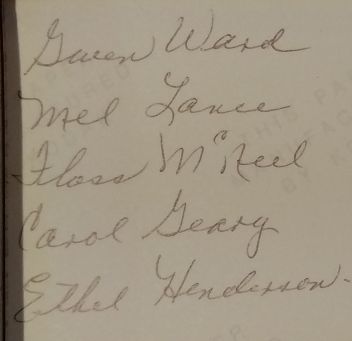 Gwen Ward
Mel Lance
Floss McKeel
Carol Geary
Ethel Henderson.